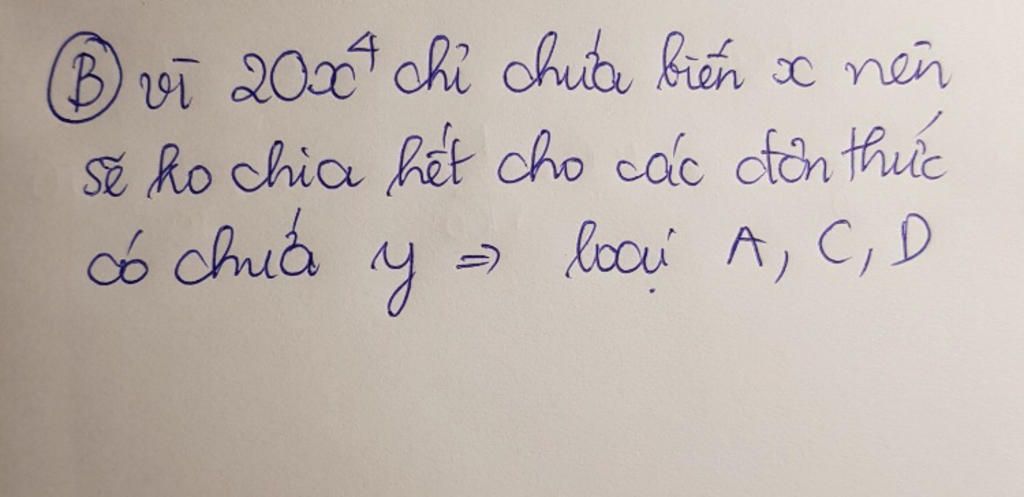 (B) vì 20x⁴ chỉ chứa biến x nên
sẽ ko chia hết cho các đơn thức
có chứa y => loại A, C, D